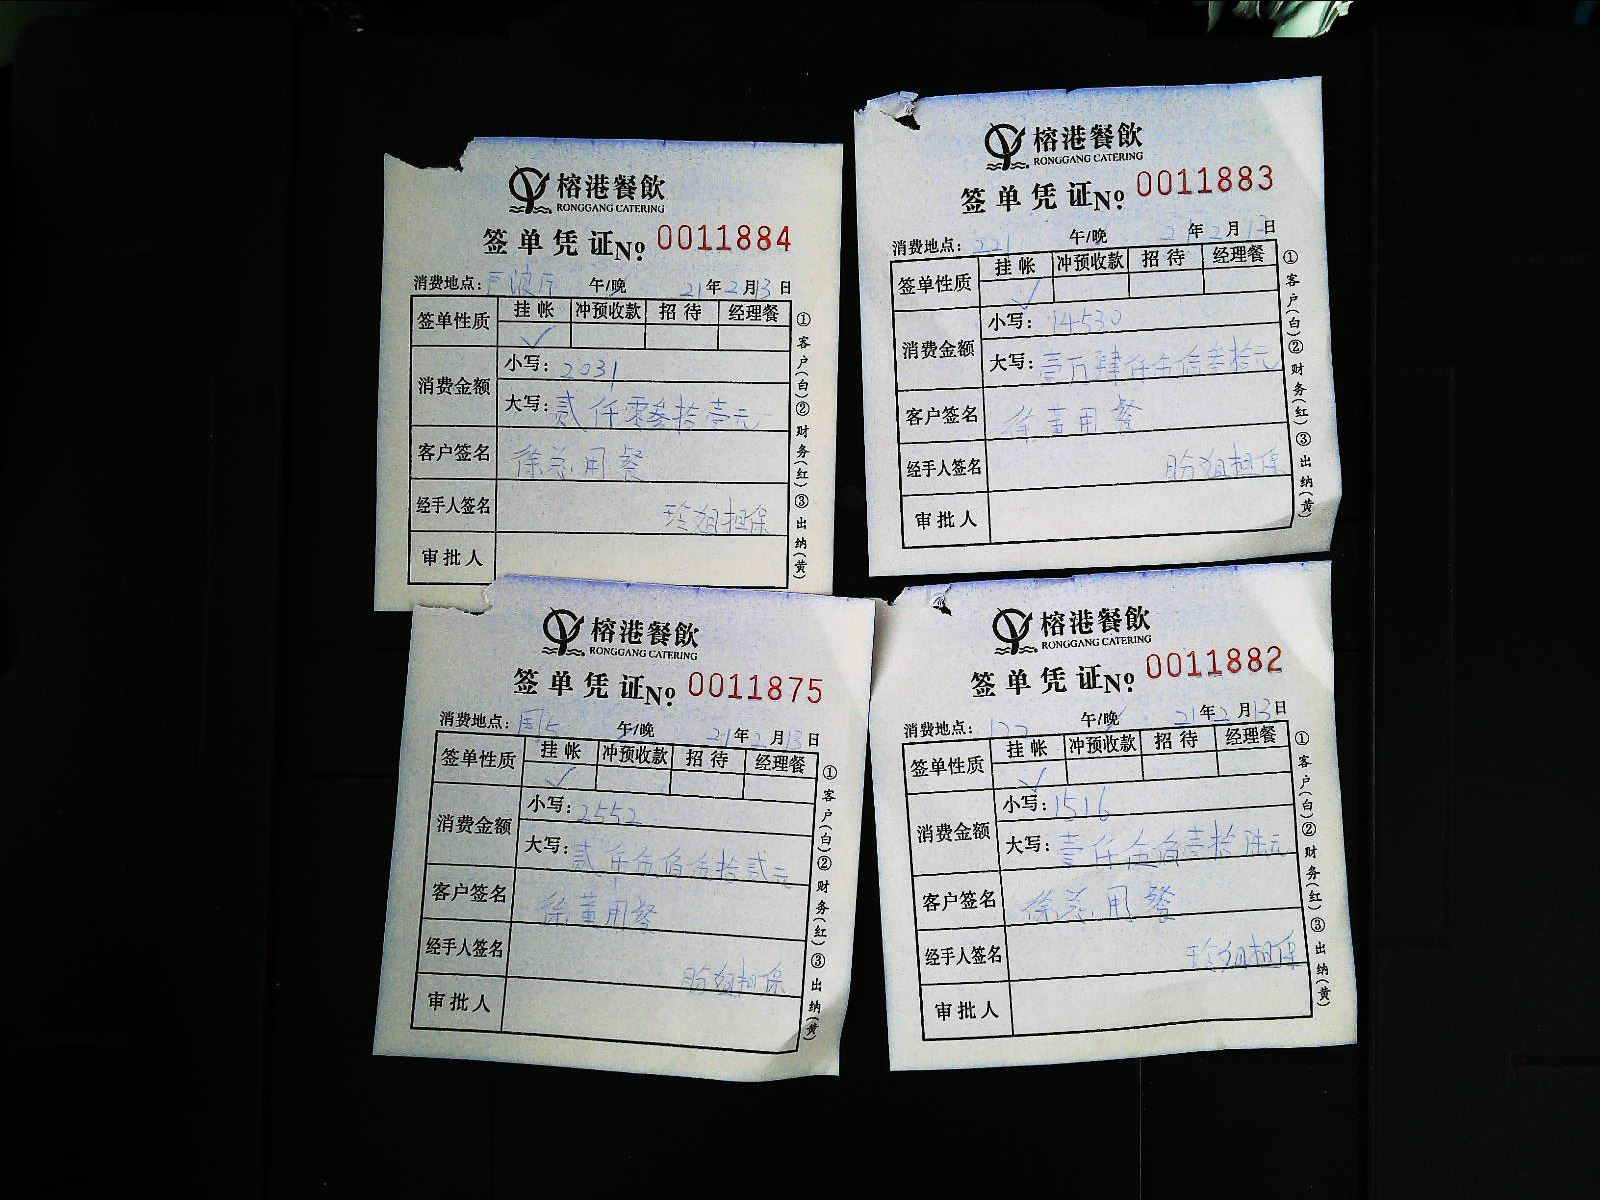 榕港餐飲
RONGGANG CATERING
签单凭证No 0011884
消费地点: 午/晚 21年2月13日
签单性质 挂帐 冲预收款 招待 经理餐
✓
消费金额 小写: 2031
大写: 贰仟零叁拾壹元
客户签名 徐总用餐
经手人签名 玲姐担保
审批人
①客户(白)②财务(红)③出纳(黄)
榕港餐飲
RONGGANG CATERING
签单凭证No 0011883
消费地点: 221 午/晚 21年2月12日
签单性质 挂帐 冲预收款 招待 经理餐
✓
消费金额 小写: 14530
大写: 壹万肆仟伍佰叁拾元
客户签名 徐董用餐
经手人签名 盼姐担保
审批人
①客户(白)②财务(红)③出纳(黄)
榕港餐飲
RONGGANG CATERING
签单凭证No 0011875
消费地点: 午/晚 21年2月13日
签单性质 挂帐 冲预收款 招待 经理餐
✓
消费金额 小写: 2552
大写: 贰仟伍佰伍拾贰元
客户签名 徐董用餐
经手人签名 盼姐担保
审批人
①客户(白)②财务(红)③出纳(黄)
榕港餐飲
RONGGANG CATERING
签单凭证No 0011882
消费地点: 122 午/晚 21年2月13日
签单性质 挂帐 冲预收款 招待 经理餐
✓
消费金额 小写: 1516
大写: 壹仟伍佰壹拾陆元
客户签名 徐总用餐
经手人签名 玲姐担保
审批人
①客户(白)②财务(红)③出纳(黄)